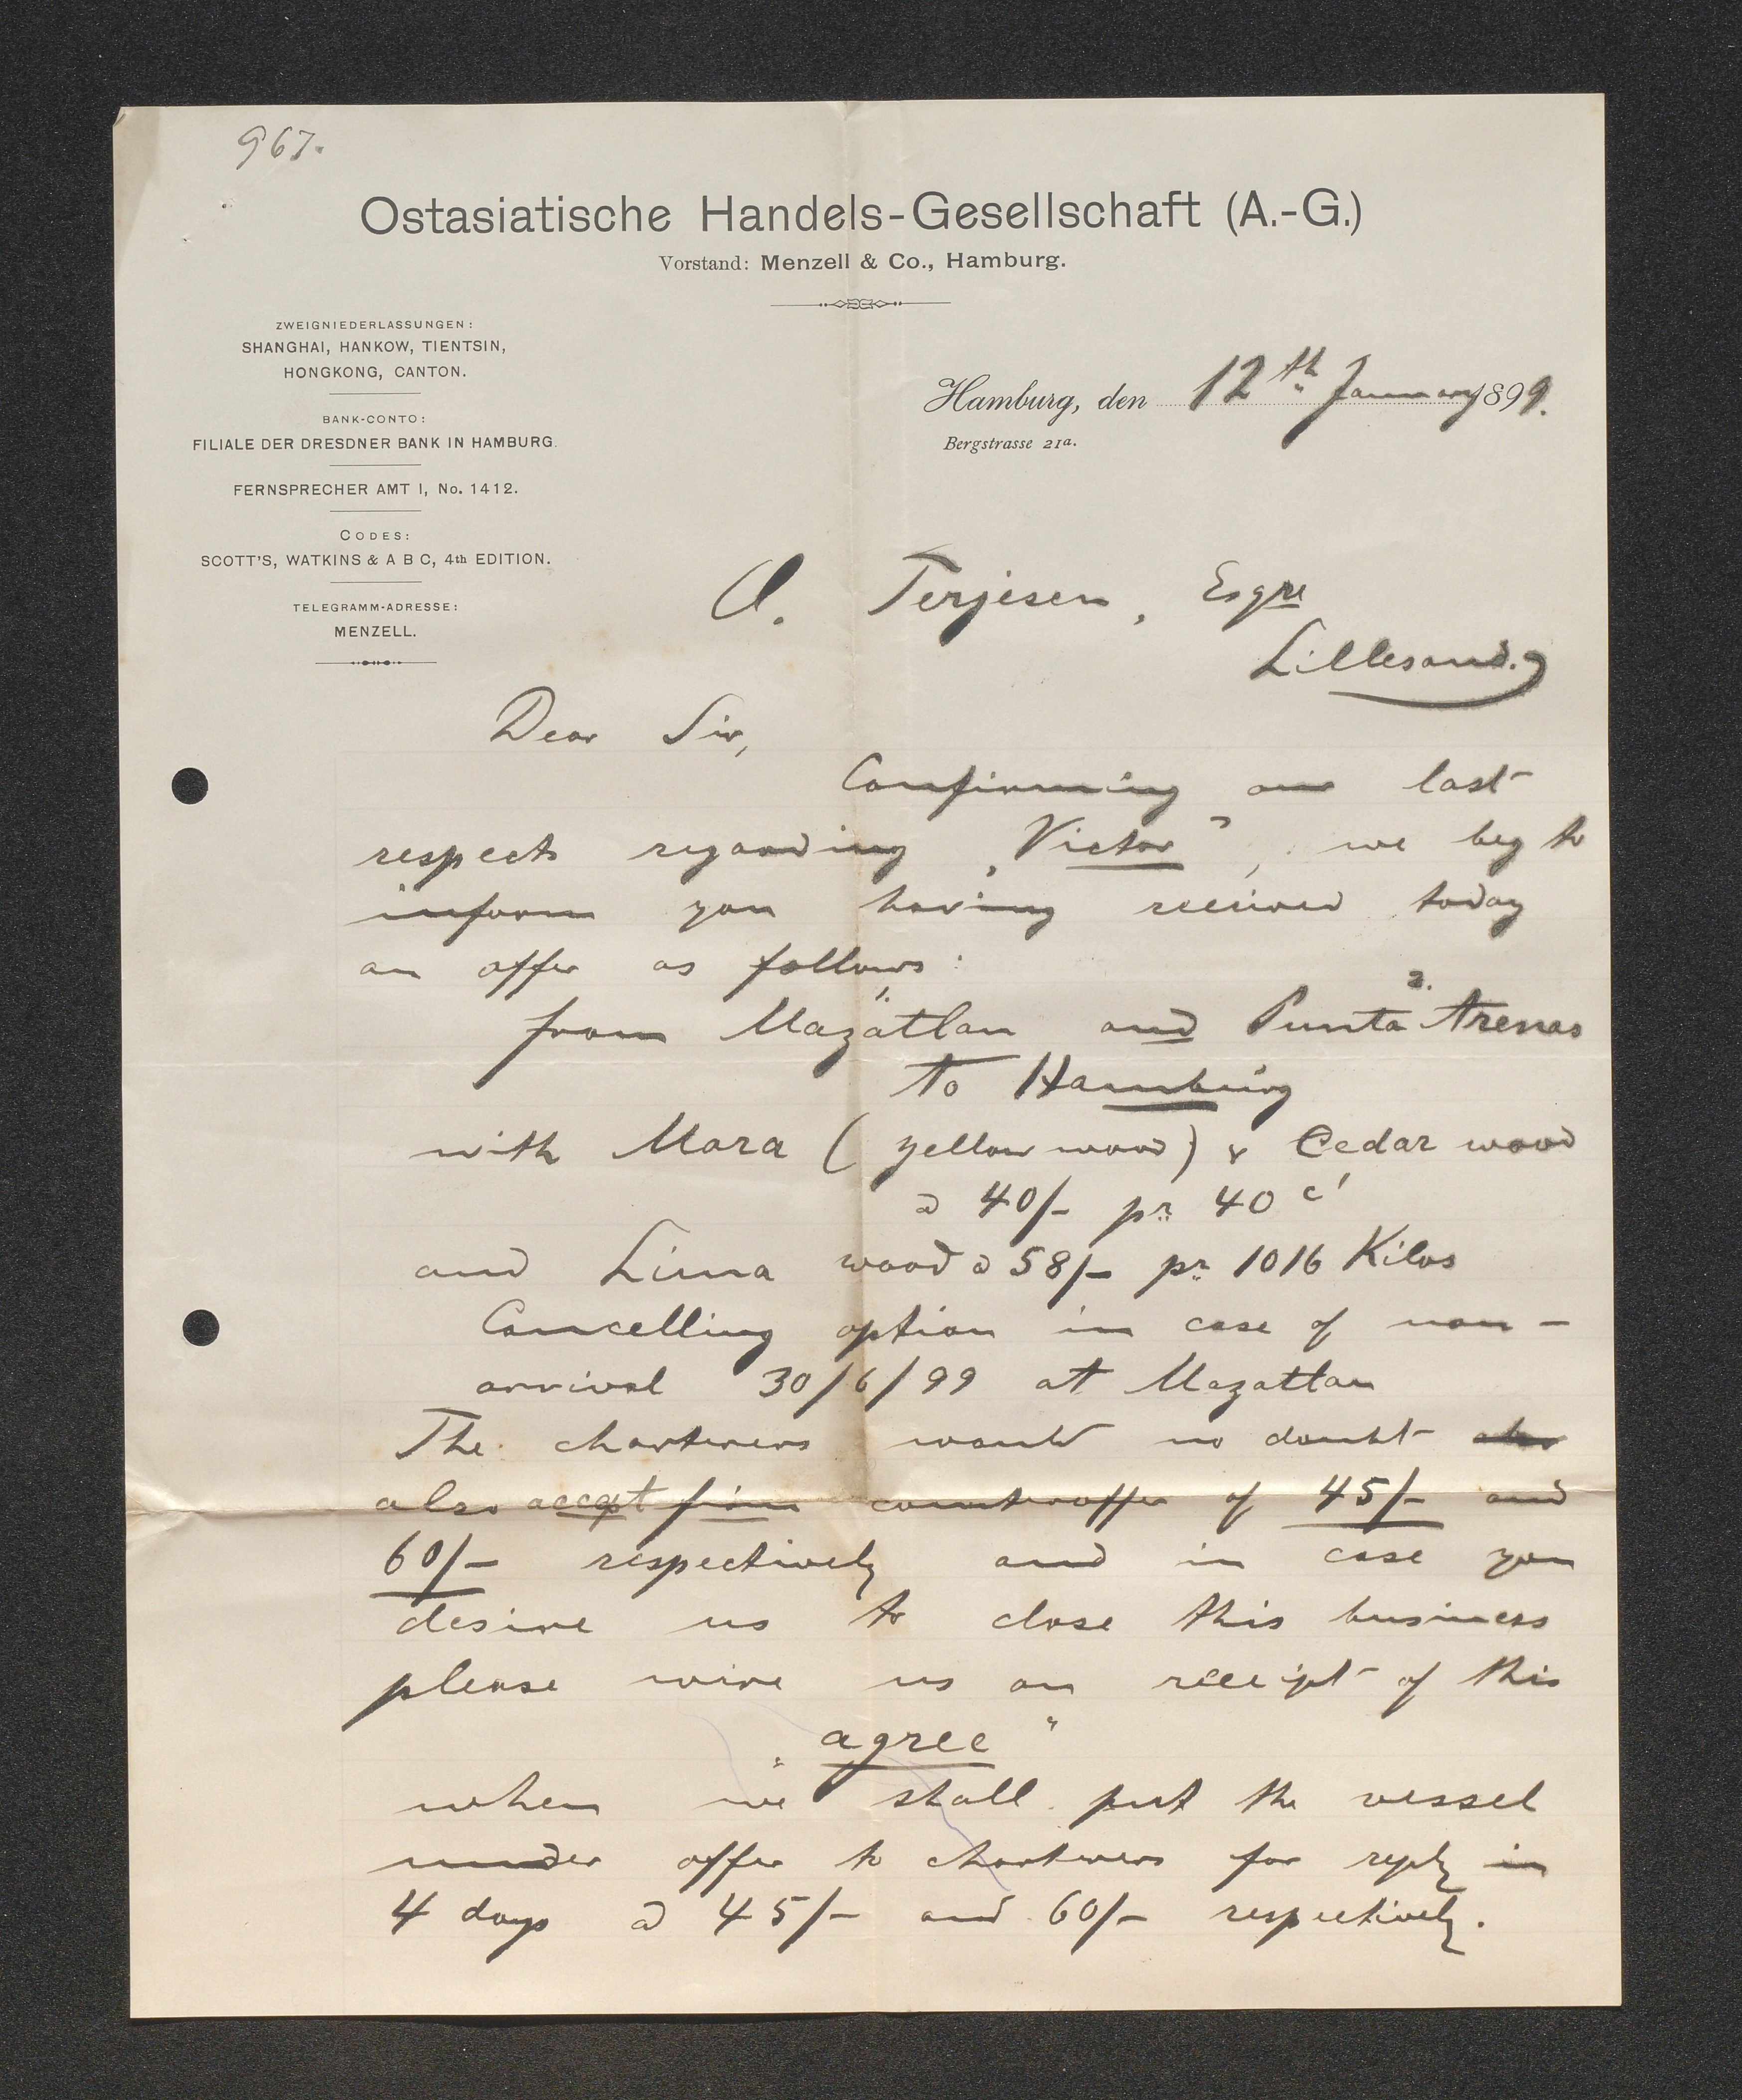 967.
Ostasiatische Handels-Gesellschaft (A.-G.)
Vorstand: Menzell & Co., Hamburg.
ZWEIGNIEDERLASSUNGEN:
SHANGHAI, HANKOW, TIENTSIN,
HONGKONG, CANTON.
BANK-CONTO:
FILIALE DER DRESDNER BANK IN HAMBURG.
FERNSPRECHER AMT I, No. 1412.
CODES:
SCOTT'S, WATKINS & A B C, 4th EDITION.
TELEGRAMM-ADRESSE:
MENZELL.
Hamburg, den 12th January 1899.
Bergstrasse 21a.
O. Terjesen, Esqre
Lillesand.
Dear Sir,
Confirming our last
respects regarding „Victor", we beg to
inform you having received today
an offer as follows:
from Mazatlan and Punta Arenas
to Hamburg
with Mora (yellow wood) & Cedar wood
a 40/- pr 40 c'
and Lima wood a 58/- pr 1016 Kilos
Cancelling option in case of non-
arrival 30/6/99 at Mazatlan
The charterers would no doubt also
also accept firm counteroffer of 45/- and
60/- respectively and in case you
desire us to close this business
please wire us on receipt of this
„agree"
when we shall put the vessel
under offer to charterers for reply in
4 days a 45/- and 60/- respectively.